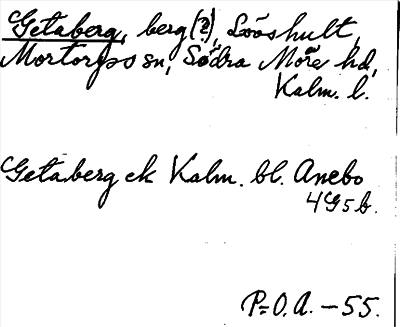 Getaberg, berg (?), Lööshult,
Mortorps sn, Södra Möre hd,
Kalm. l.
Getaberg ek Kalm. bl. Anebo
4G5b.
P-O.A. -55.